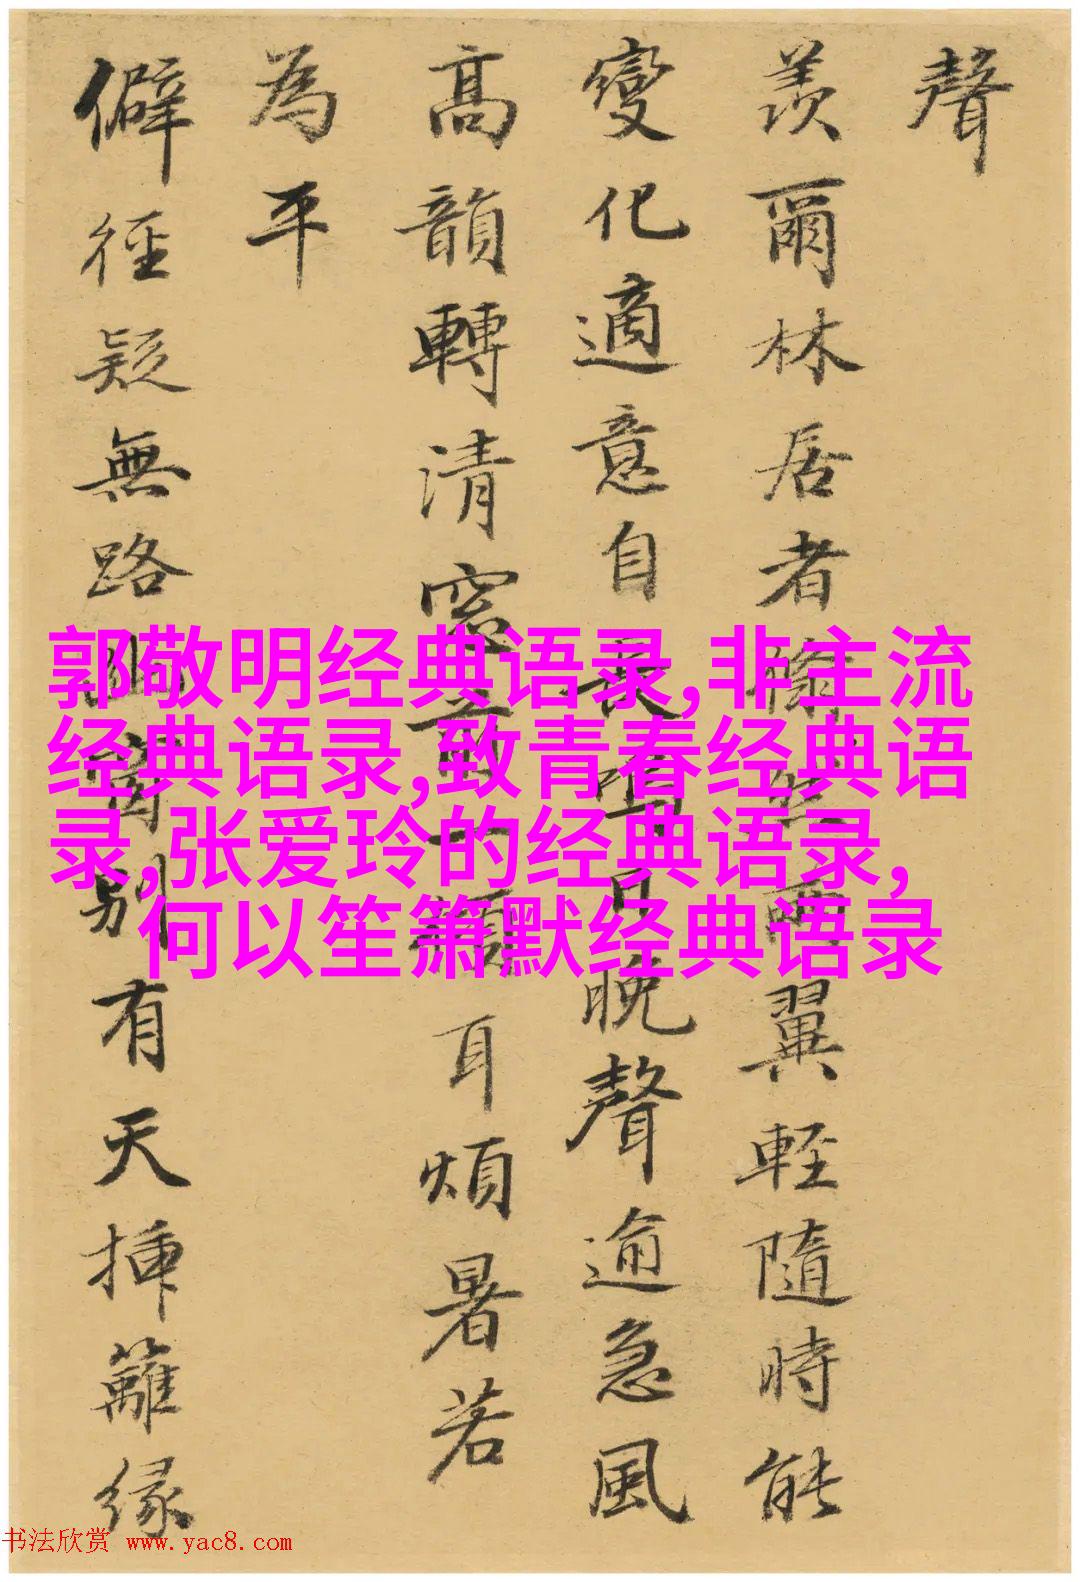 聲
羨爾林居者翛然兩翼輕隨時能
變化適意自長鳴日晚聲逾急風
高韻轉清窓前一傾耳煩暑若
為平
僻徑疑無路幽窗別有天挿籬緣
郭敬明经典语录,非主流
经典语录,致青春经典语
录,张爱玲的经典语录,
何以笙箫默经典语录
书法欣赏 www.yac8.com